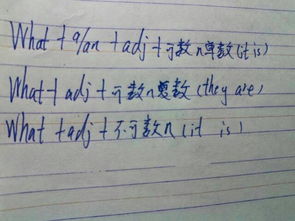 What + a/an + adj +可数n单数(it is)
What + adj + 可数n复数(they are)
What + adj + 不可数n(it is)